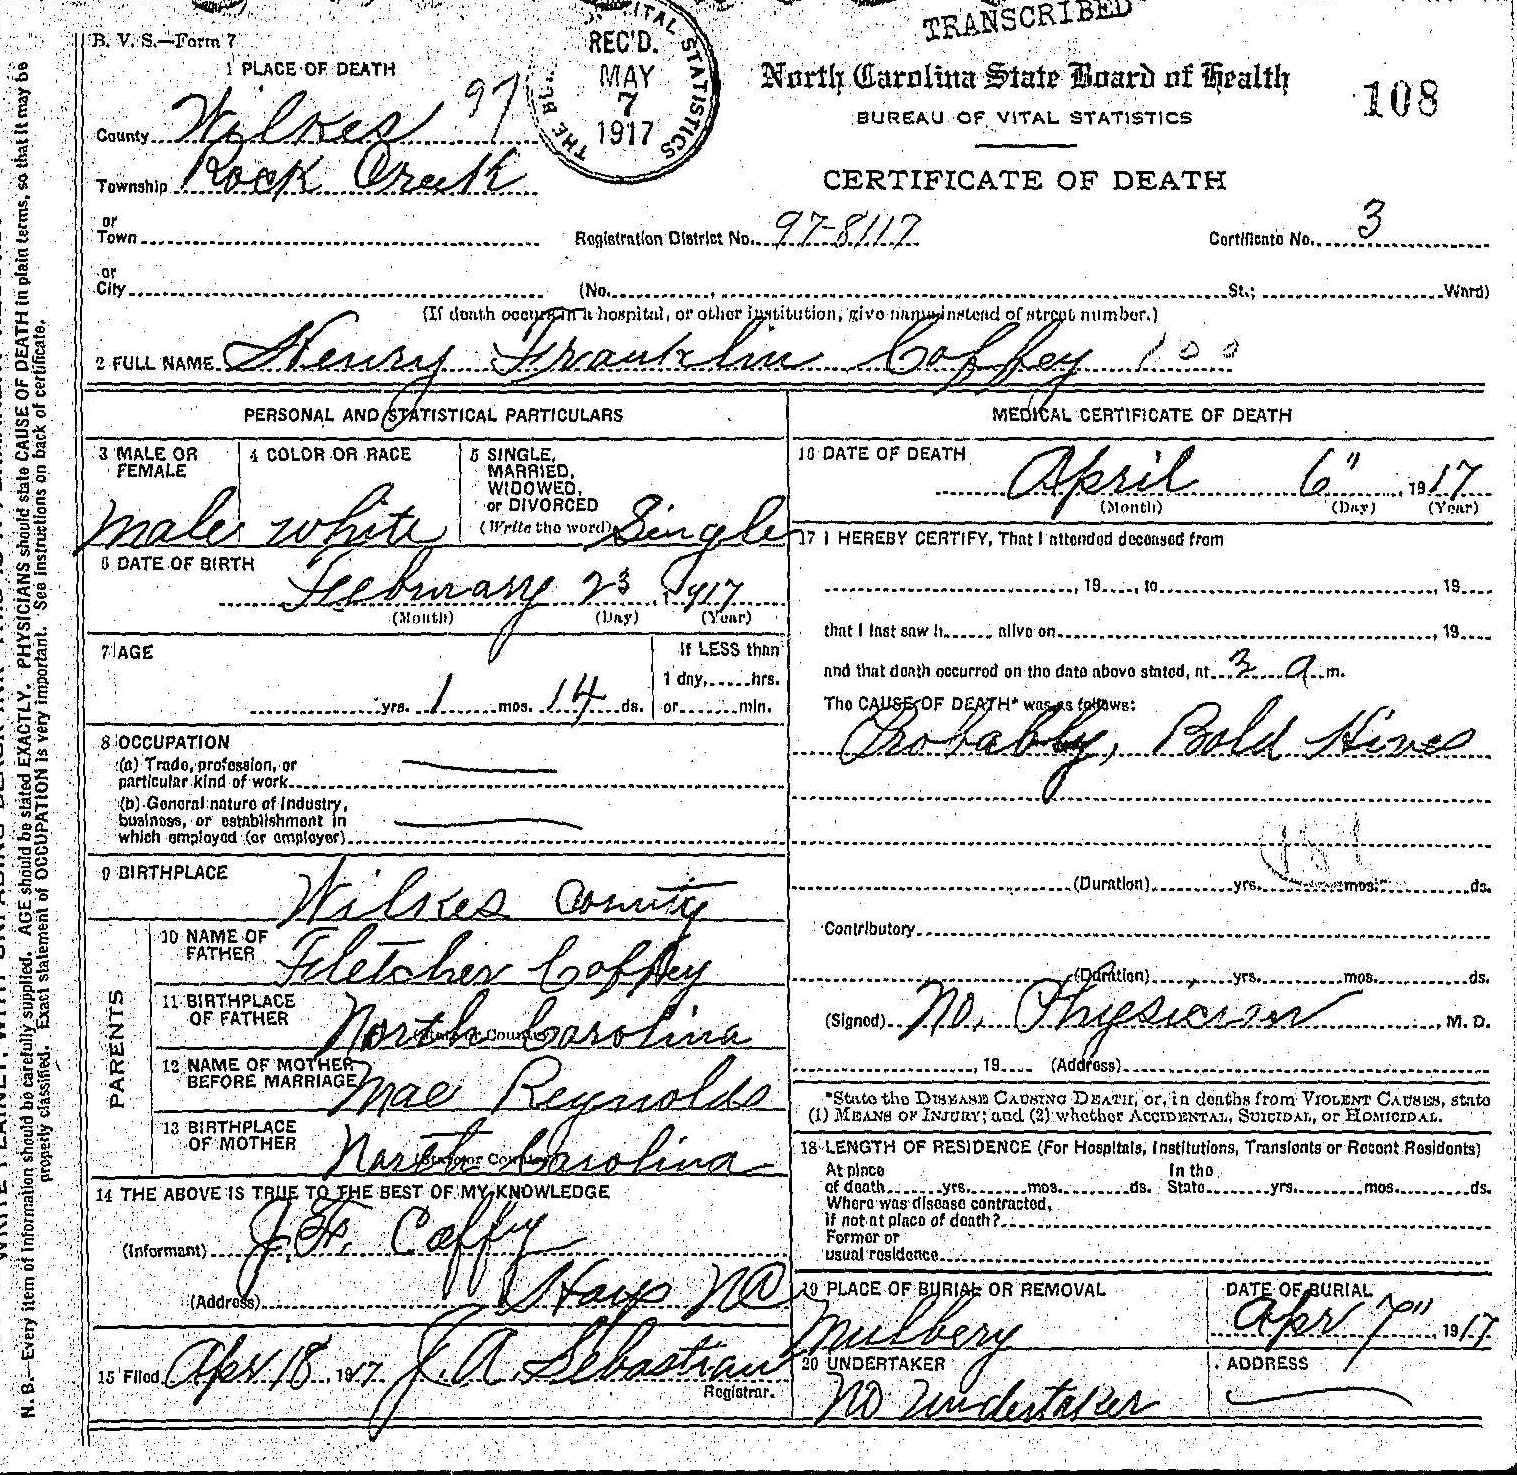 TRANSCRIBED
B. V. S.—Form 7
1 PLACE OF DEATH
County Wilkes 97
Township Rock Creek
or
Town
or
City
THE VITAL STATISTICS
REC'D.
MAY
7
1917
North Carolina State Board of Health
BUREAU OF VITAL STATISTICS
108
CERTIFICATE OF DEATH
Registration District No. 97-8117 Certificate No. 3
(No. , St.; Ward)
(If death occurs in a hospital, or other institution, give name instead of street number.)
2 FULL NAME Henry Franklin Coffey 100
PERSONAL AND STATISTICAL PARTICULARS
3 MALE OR FEMALE
Male
4 COLOR OR RACE
White
5 SINGLE,
MARRIED,
WIDOWED,
or DIVORCED
(Write the word) Single
6 DATE OF BIRTH
February 23, 1917
(Month) (Day) (Year)
7 AGE
yrs. 1 mos. 14 ds.
If LESS than
1 day, hrs.
or min.
8 OCCUPATION
(a) Trade, profession, or
particular kind of work
(b) General nature of industry,
business, or establishment in
which employed (or employer)
9 BIRTHPLACE
Wilkes County
PARENTS
10 NAME OF
FATHER Fletcher Coffey
11 BIRTHPLACE
OF FATHER North Carolina
(State or Country)
12 NAME OF MOTHER
BEFORE MARRIAGE Mae Reynolds
13 BIRTHPLACE
OF MOTHER North Carolina
(State or Country)
14 THE ABOVE IS TRUE TO THE BEST OF MY KNOWLEDGE
(Informant) J. F. Caffy
(Address) Hays NC
15 Filed Apr 18, 1917 J. A Sebastian
Registrar.
MEDICAL CERTIFICATE OF DEATH
16 DATE OF DEATH
April 6", 1917
(Month) (Day) (Year)
17 I HEREBY CERTIFY, That I attended deceased from
, 19 , to , 19
that I last saw h alive on , 19
and that death occurred on the date above stated, at 3 a m.
The CAUSE OF DEATH* was as follows:
Probably, Bold Hives
(Duration) yrs. mos. ds.
Contributory
(Duration) yrs. mos. ds.
(Signed) No. Physician , M. D.
, 19 (Address)
*State the DISEASE CAUSING DEATH, or, in deaths from VIOLENT CAUSES, state
(1) MEANS OF INJURY; and (2) whether ACCIDENTAL, SUICIDAL, or HOMICIDAL.
18 LENGTH OF RESIDENCE (For Hospitals, Institutions, Transients or Recent Residents)
At place
of death yrs. mos. ds.
In the
State yrs. mos. ds.
Where was disease contracted,
if not at place of death?
Former or
usual residence
19 PLACE OF BURIAL OR REMOVAL
Mulbery
DATE OF BURIAL
Apr 7", 1917
20 UNDERTAKER
No Undertaker
ADDRESS
N. B.—Every item of information should be carefully supplied. AGE should be stated EXACTLY. PHYSICIANS should state CAUSE OF DEATH in plain terms, so that it may be
properly classified. Exact statement of OCCUPATION is very important. See instructions on back of certificate.